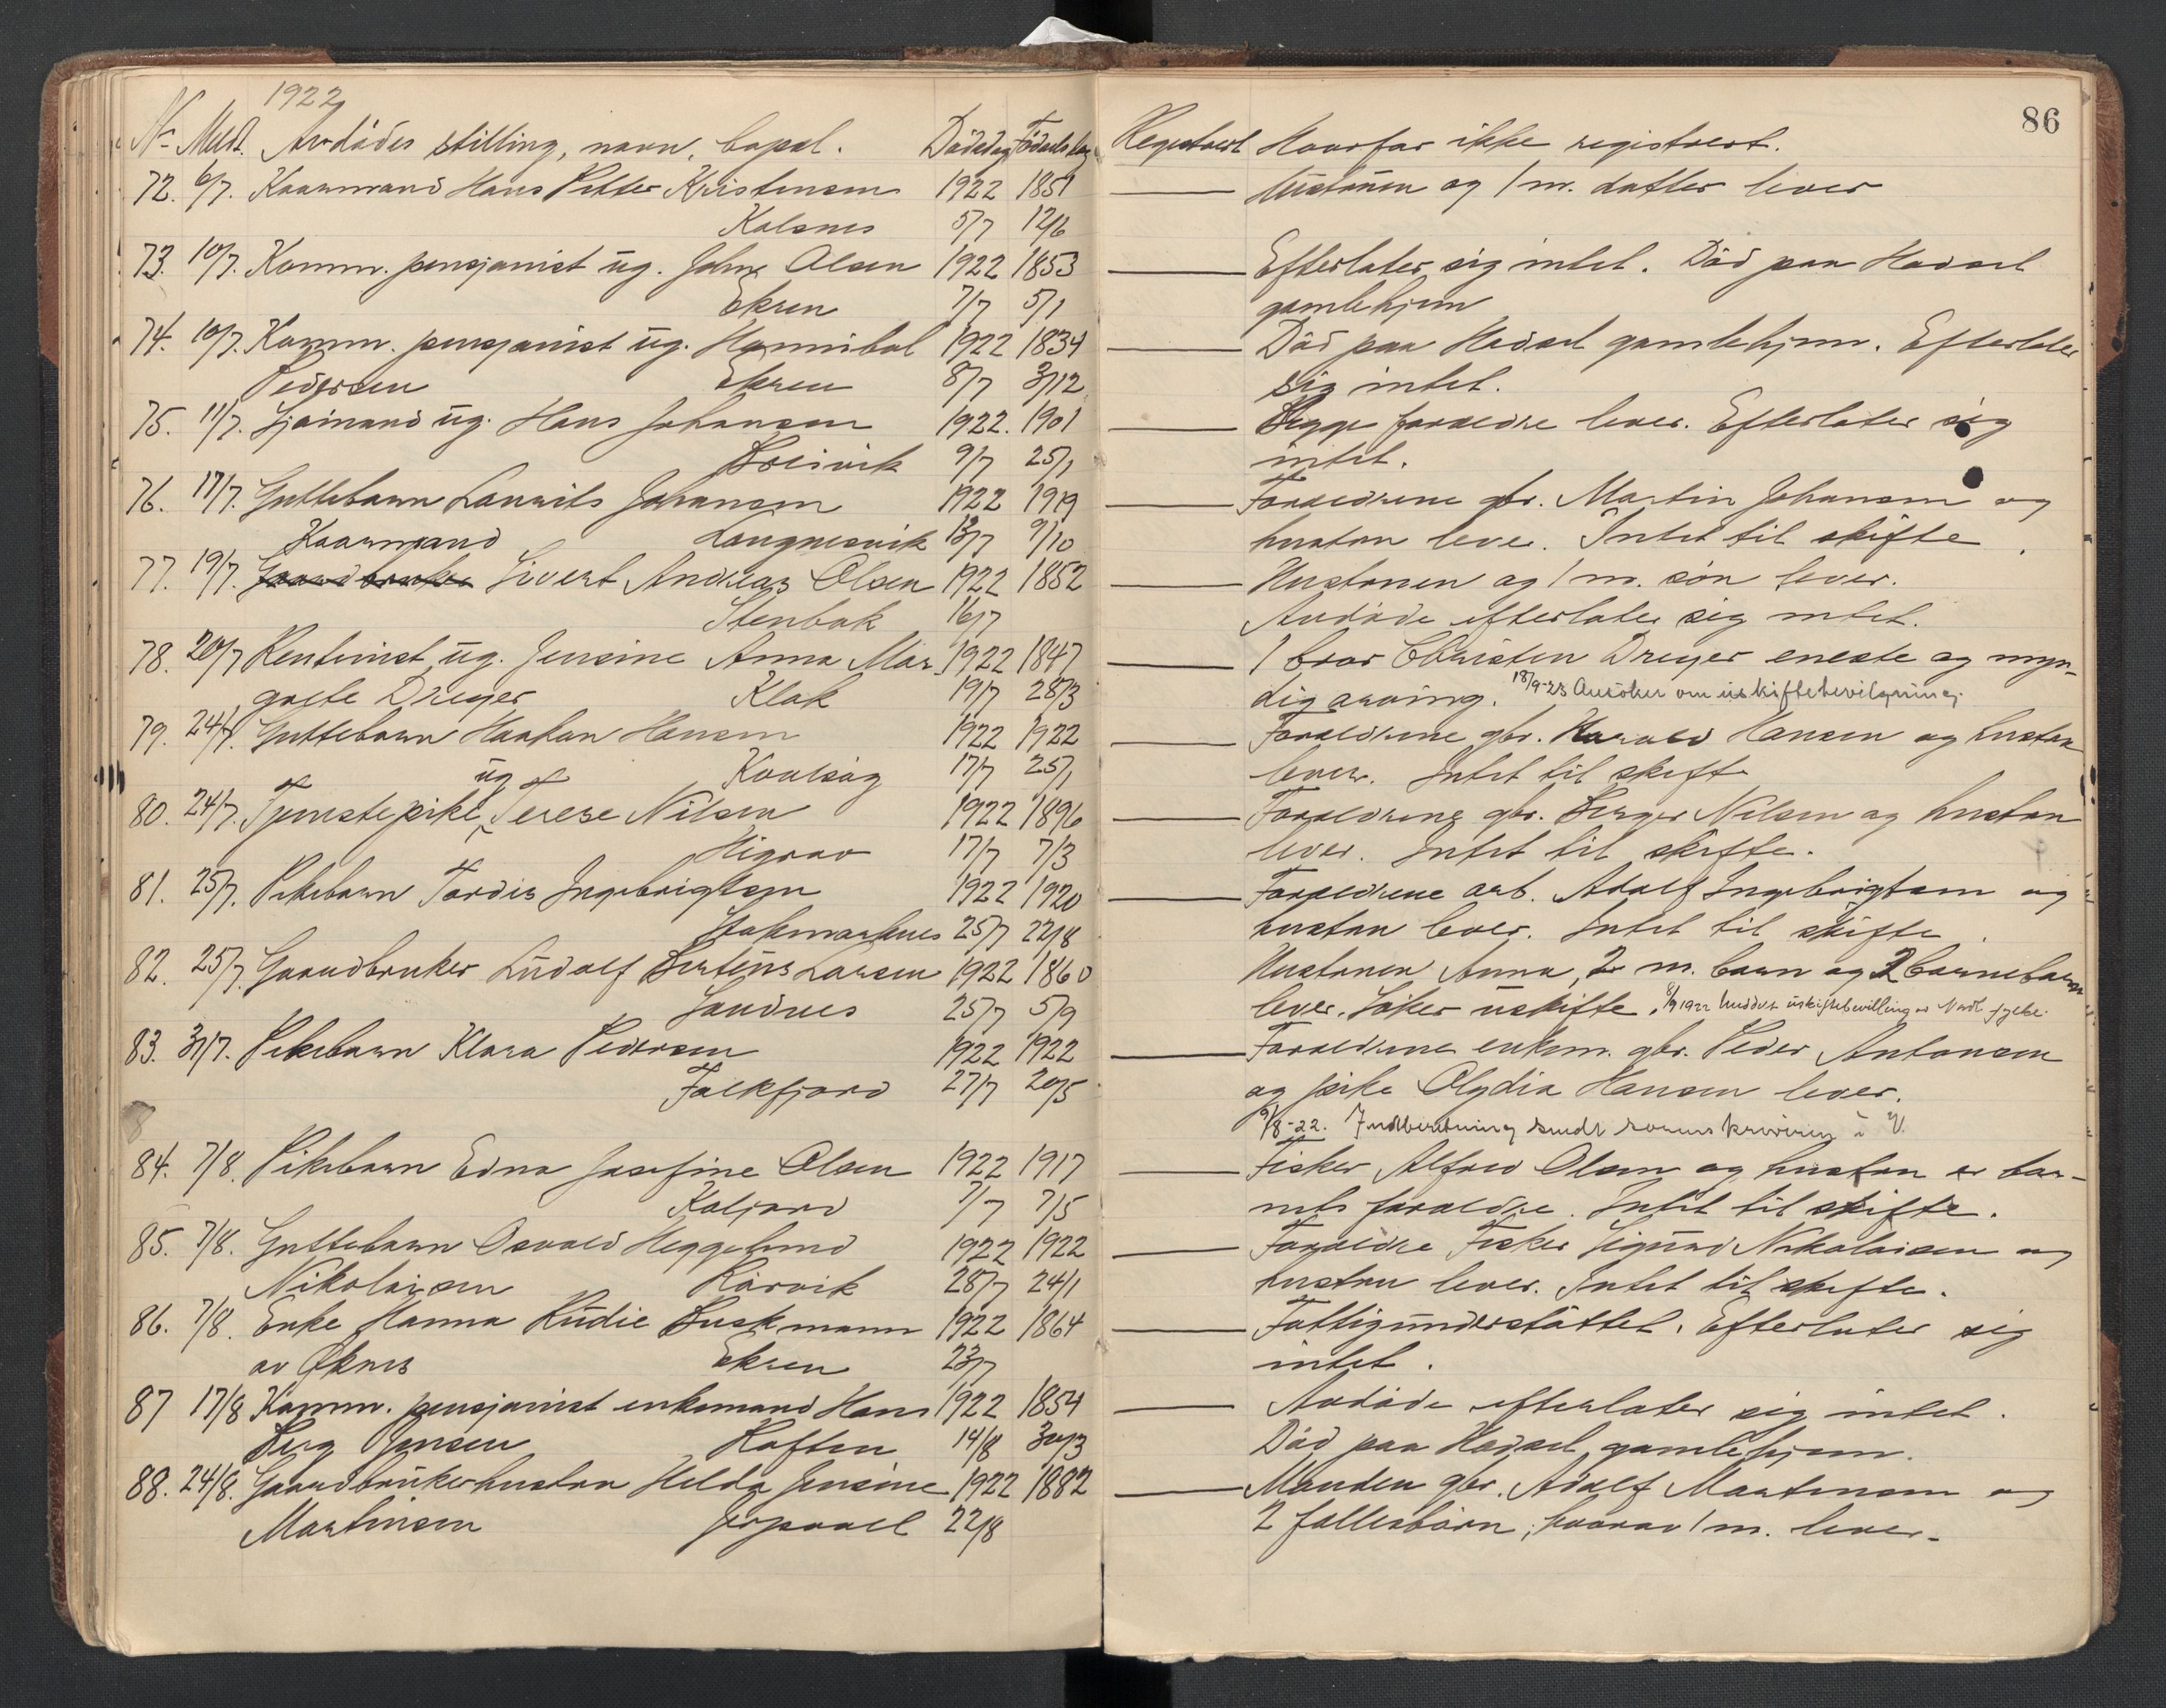 1922
86
Nr. Meldt. Avdødes stilling, navn, bopæl. Dødsdag Fødselsdag Registrert Hvorfor ikke registrert.
72. 6/7. Kaarmand Hans Petter Kristensen 1922 1851 — Hustruen og 1 m. datter lever
Kalsnes 5/7 12/6
73. 10/7. Komm. pensjonist ug. Johns Olsen 1922 1853 — Efterlater sig intet. Død paa Hadsel
Ekren 7/7 5/1 gamlehjem
74. 10/7. Komm. pensjonist ug. Hannibal 1922 1834 — Død paa Hadsel gamlehjem. Efterlater
Pedersen Ekren 8/7 3/12 sig intet.
75. 11/7. Sjømand ug. Hans Johansen 1922. 1901 — Begge forældre lever. Efterlater sig
9/7 25/1 intet.
76. 17/7. Guttebarn Laurits Johansen 1922 1919 — Forældrene gbr. Martin Johansen og
Kaarmand Laugnesvik 13/7 9/10 hustru lever. Intet til skifte.
77. 19/7. Gaardbruker Sivert Andreas Olsen 1922 1852 — Hustruen og 1 m. søn lever.
Stenbak 16/7 Avdøde efterlater sig intet.
78. 20/7 Rentenist ug. Jensine Anna Mar- 1922 1847 — 1 bror Christen Dreyer eneste og myn-
grete Dreyer Klak 19/7 28/3 dig arving. 18/9-23 Ansøker om uskiftebevilgning.
79. 24/7. Guttebarn Haakon Hansen 1922 1922 — Forældrene gbr. Harald Hansen og hustru
Kvalsøg 17/7 25/1 lever. Intet til skifte
80. 24/7. Tjenestepike ug Terese Nilsen 1922 1896 — Forældrene gbr. Berger Nilsen og hustru
Higrav 17/7 7/3 lever. Intet til skifte.
81. 25/7. Pikebarn Tordis Ingebrigtsen 1922 1920 — Forældrene arb. Adolf Ingebrigtsen og
Stokmarknes 25/7 22/8 hustru lever. Intet til skifte.
82. 25/7. Gaardbruker Ludolf Bertens Larsen 1922 1860 Hustruen Anna, 2 m. barn og 2 barnebarn
Sandnes 25/7 5/9 lever. Søker uskifte. 8/9 1922 meddelt uskiftebevilling av Nordl. fylke.
83. 31/7. Pikebarn Klara Pedersen 1922 1922 — Forældrene enkem. gbr. Peder Antonsen
Falkfjord 27/7 20/5 og pike Olydia Hansen lever.
9/8-22. Indberetning sendt sorenskriveren i V.
84. 7/8. Pikebarn Edna Josefine Olsen 1922 1917 — Fisker Alfred Olsen og hustru er bar-
Kaljord 7/7 7/5 nets forældre. Intet til skifte.
85. 7/8. Guttebarn Osvald Heggelund 1922 1922 — Forældre Fisker Sigurd Nikolaisen og
Nikolaisen Rørvik 28/7 24/1 hustru lever. Intet til skifte.
86. 7/8. Enke Hanna Rudie Buskmann 1922 1864 — Fattigunderstøttet. Efterlater sig
av Øksnes Ekren 23/7 intet.
87 17/8 Komm. pensjonist enkemand Hans 1922 1854 — Avdøde efterlater sig intet.
Berg Jensen Raften 14/8 30/3 Død paa Hadsel gamlehjem.
88. 24/8. Gaardbrukerhustru Helda Jensine 1922 1882 — Manden gbr. Adolf Martinsen og
Martinsen 22/8 2 fællesbarn, hvorav 1 m. lever.